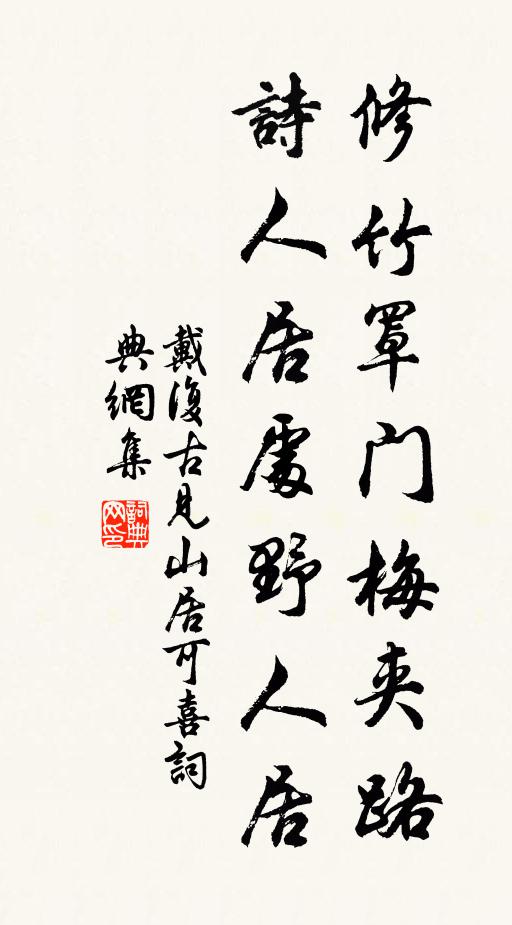 修竹罩門梅夾路
詩人居處野人居
戴復古見山居可喜詞
典網集
詞典網印